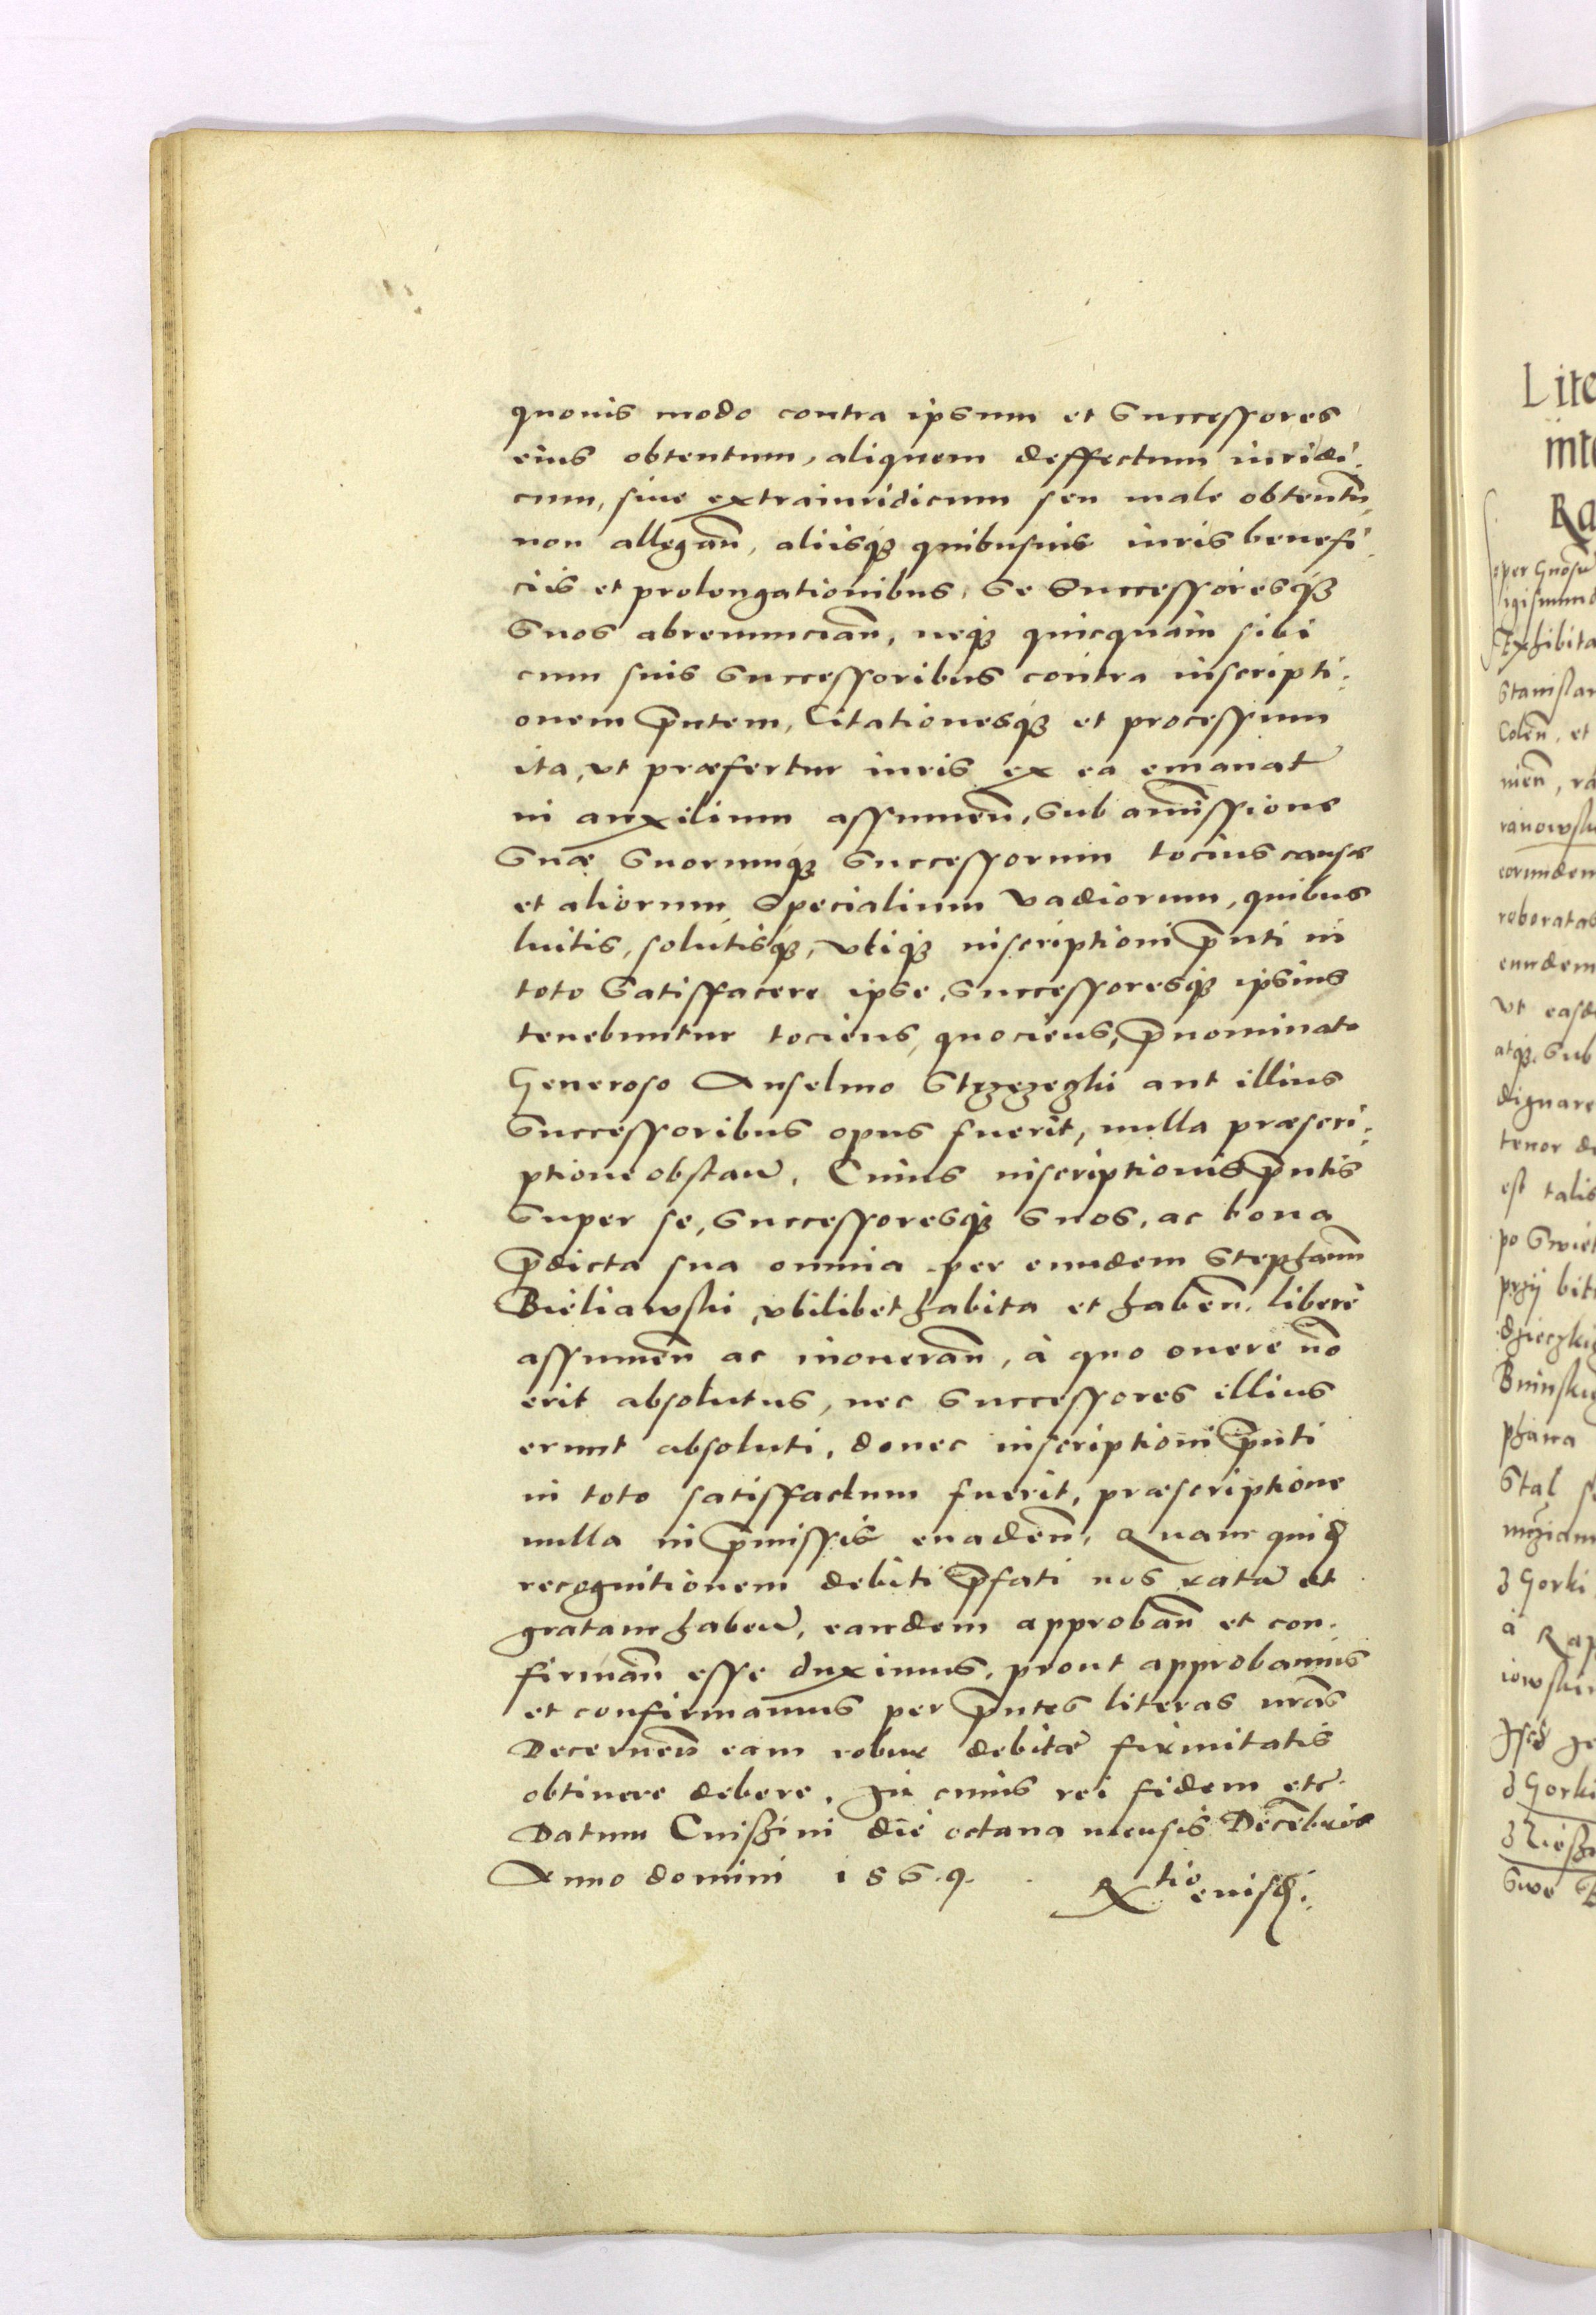 quouis modo contra ipsum et Successores
eius obtentum, aliquem deffectum iuridi:
cum, siue extraiuridicum seu male obtentũ
non allegan̄, aliisq₃ quibusuis iuris benefi:
ciis et prolongationibus, se Successoresq₃
Suos abrenuncian̄, neq₃ quicquam sibi
cum suis Successoribus contra inscripti:
onem p̄ntem, Citationesq₃ et processum
ita, vt præfertur iuris ex ea emanat̃
in auxilium assumen̄, Sub amissione
Suæ Suorumq₃ Successorum tocius causæ
et aliorum Specialium vadiorum, quibus
luitis, solutisq₃, vtiq₃ inscriptioni p̄nti in
toto Satisffacere ipse, Successoresq₃ ipsius
tenebuntur tociens, quociens, p̄nominato
Generoso Anselmo aut illius
Successoribus opus fuerit, nulla præscri:
ptione obstan̄. Cuius inscriptionis p̄ntis
Super se, Successoresq₃ Suos, ac bona
p̄dicta sua omnia per eundem Stephanũ
Bieliawski vbilibet habita et haben̄. liberè
assumen̄ ac inoneran̄, à quo onere nō
erit absolutus, nec Successores illius
erunt absoluti, donec inscriptioni p̄nti
in toto satisffactum fuerit, præscriptione
nulla in p̄missis euaden̄. Quam quid̃
recognitionem debiti p̄fati nos ratã et
gratam haben̄, eandem approban̄ et con:
firman̄ esse duximus, prout approbamus
et confirmamus per p̄ntes literas nr̄as
Decernen̄ eam robur debitæ firmitatis
obtinere debere. In cuius rei fidem etc̃.
Datum Cnishini die octaua mensis Decēbris
Anno domini 1569.
R tio euisd̃:
Lite
inte
Ra
per Gnosũ
igismund
Exhibita
Stanislau
Colen̄, et
men̄, ra
ranowski
eorundem
roboratas
eundem
vt easde
atq₃ Sub
dignare
tenor de
est talis
po Swiet
przÿ bit
Bninski
phana
Stal s
z Gorki
à Rap
iowski
z Gorki
Swe